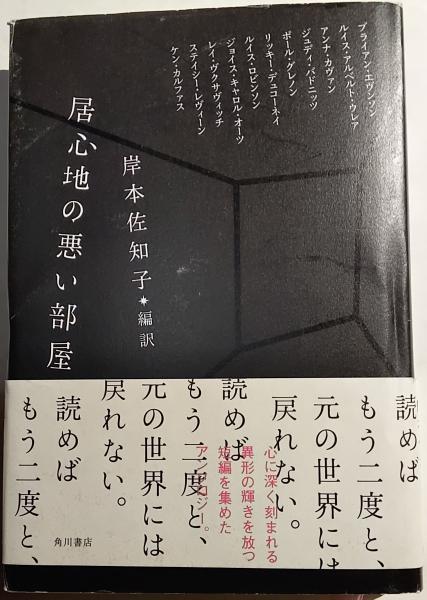 ブライアン・エヴンソン
ルイス・アルベルト・ウレア
アンナ・カヴァン
ジュディ・バドニッツ
ポール・グレノン
リッキー・デュコーネイ
ルイス・ロビンソン
ジョイス・キャロル・オーツ
レイ・ヴクサヴィッチ
ステイシー・レヴィーン
ケン・カルファス
岸本佐知子*編訳
居心地の悪い部屋
読めば
もう二度と、
元の世界には
戻れない。
読めば
もう二度と、
元の世界には
戻れない。
読めば
もう二度と、
心に深く刻まれる
異形の輝きを放つ
短編を集めた
アンソロジー。
角川書店